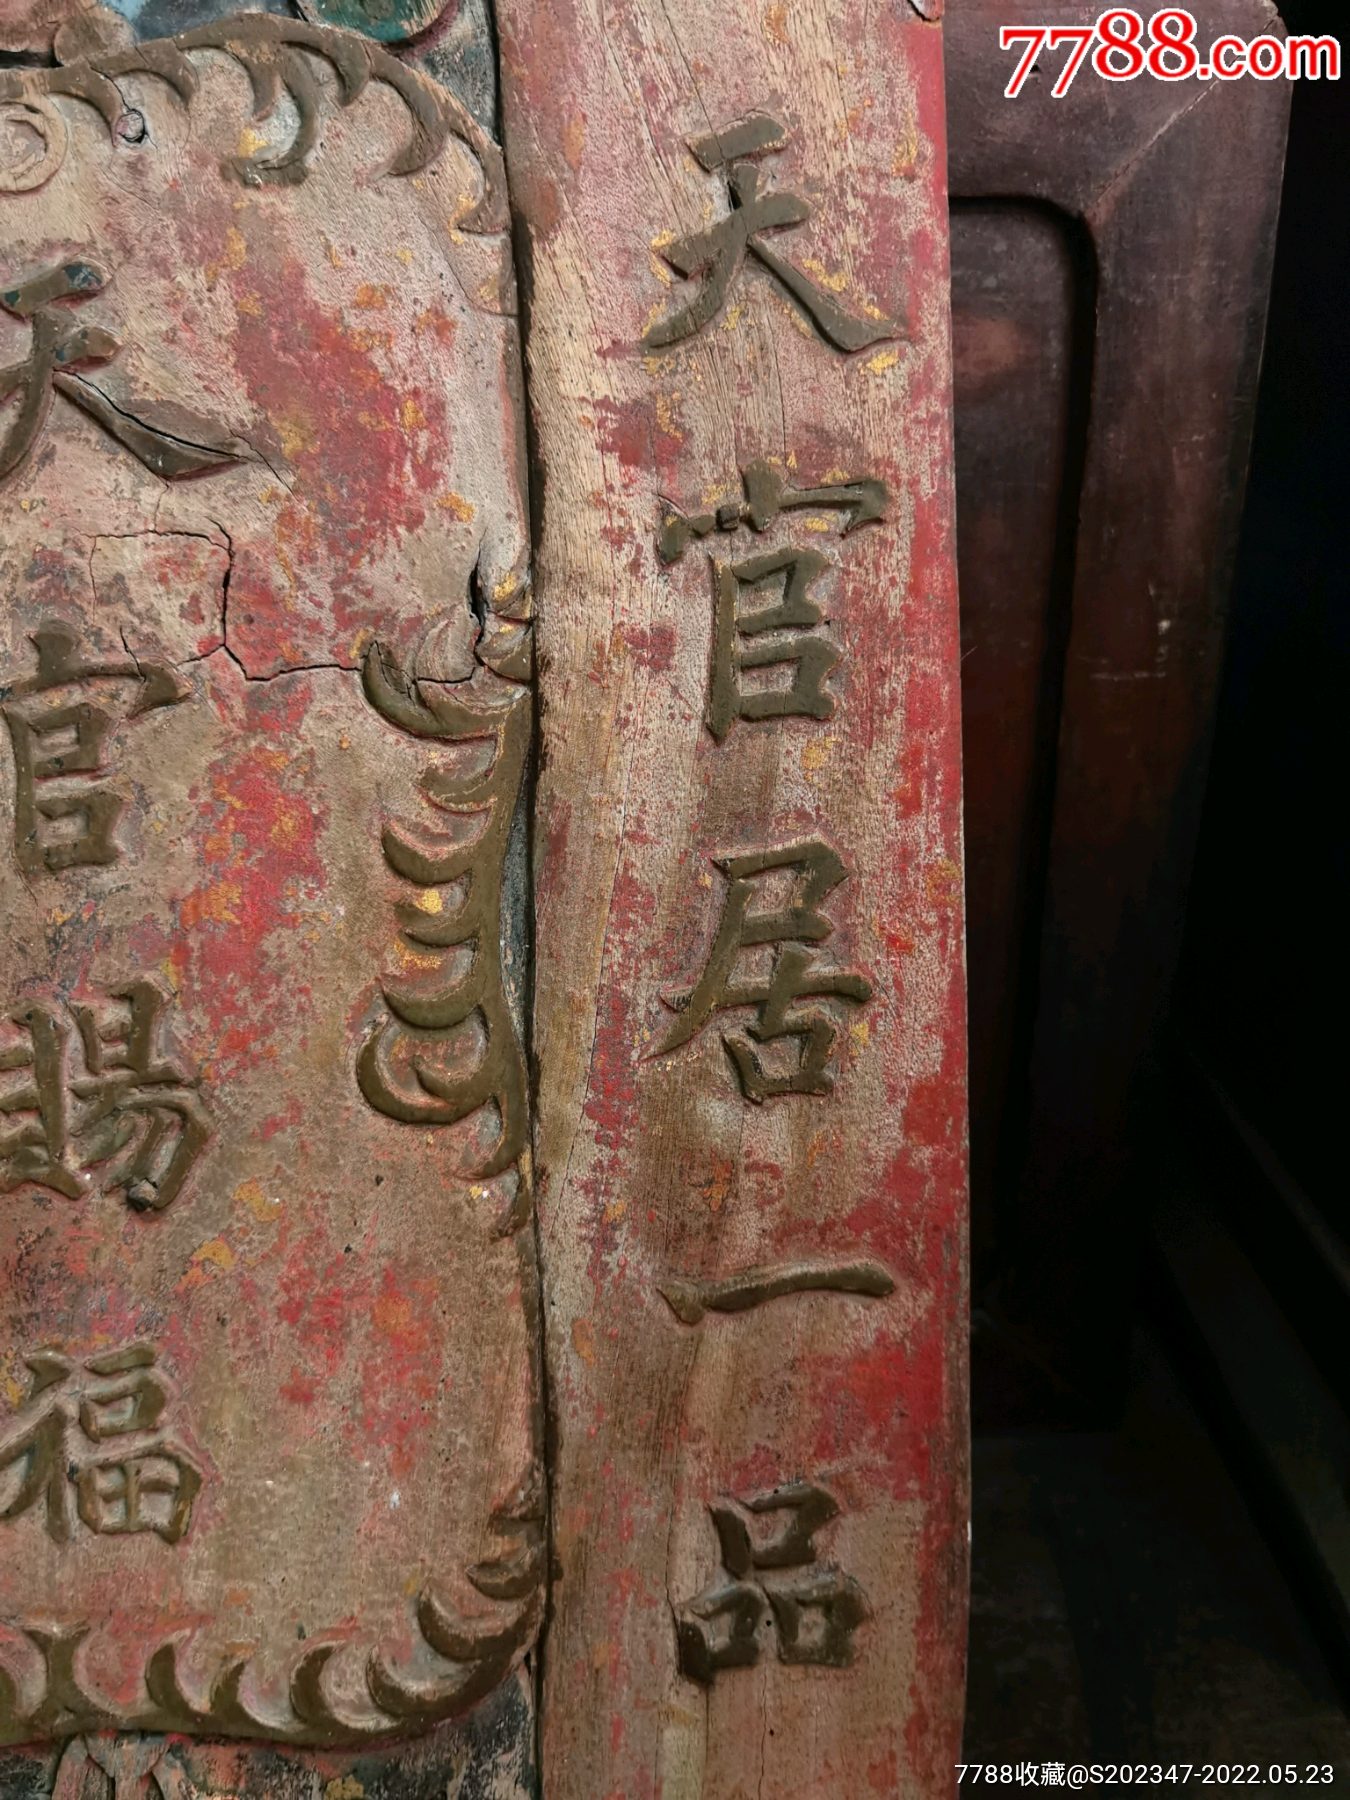 7788.com
天官居一品
天官賜福
7788收藏@S202347-2022.05.23